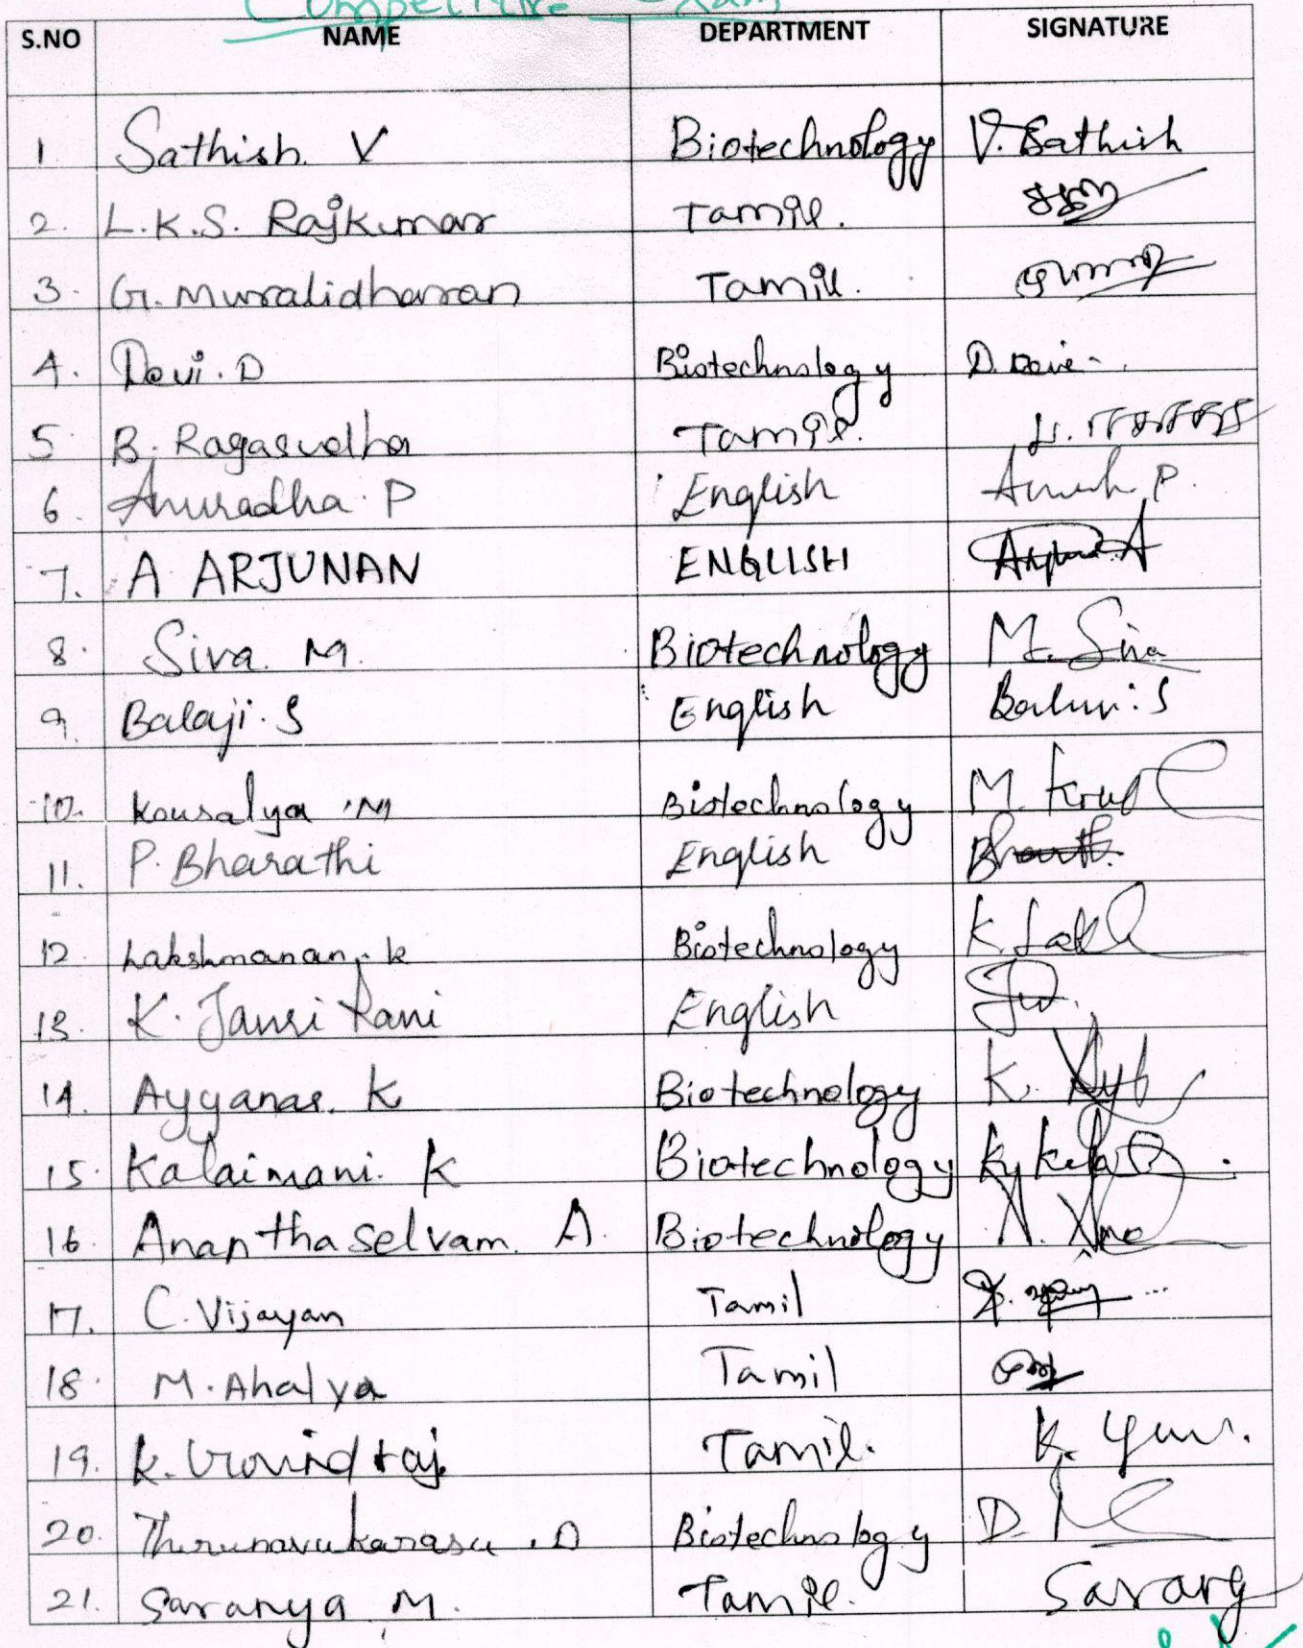 Competitive Exam
S.NO NAME DEPARTMENT SIGNATURE
1 Sathish. V Biotechnology V. Sathish
2. L.K.S. Rajkumar Tamil.
3. G. Muralidharan Tamil.
4. Devi. D Biotechnology D. Devi
5 B. Ragasudha Tamil.
6. Anuradha. P English P.
7. A ARJUNAN ENGLISH A
8. Siva. M. Biotechnology M. Siva
9. Balaji. S English S
10. Kousalya. M Biotechnology M.
11. P. Bharathi English
12. Lakshmanan. k Biotechnology K.
13. K. Jansi Rani English
14. Ayyanar. K Biotechnology K.
15. Kalaimani. K Biotechnology
16. Anantha Selvam. A. Biotechnology A.
17. C. Vijayan Tamil
18. M. Ahalya Tamil
19. K. Govindraj Tamil. K.
20. Thirunavukarasu. D Biotechnology D.
21. Saranya M. Tamil. Sarany